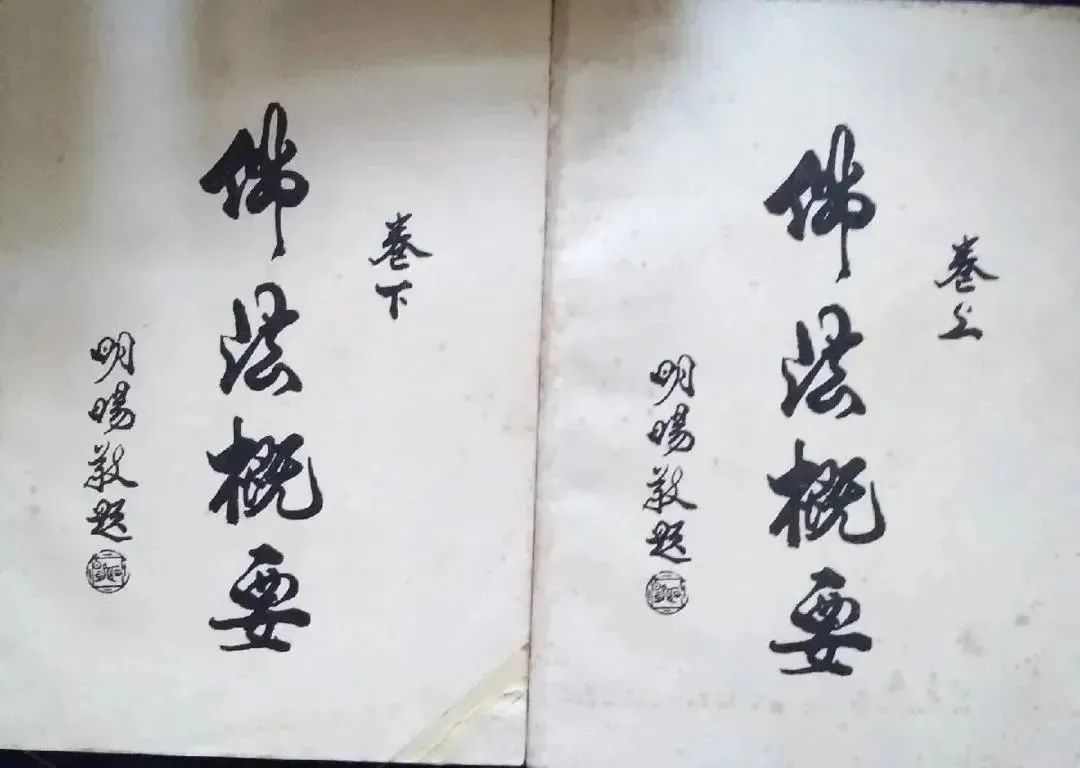 卷上
佛法概要
明暘敬题
卷下
佛法概要
明暘敬题